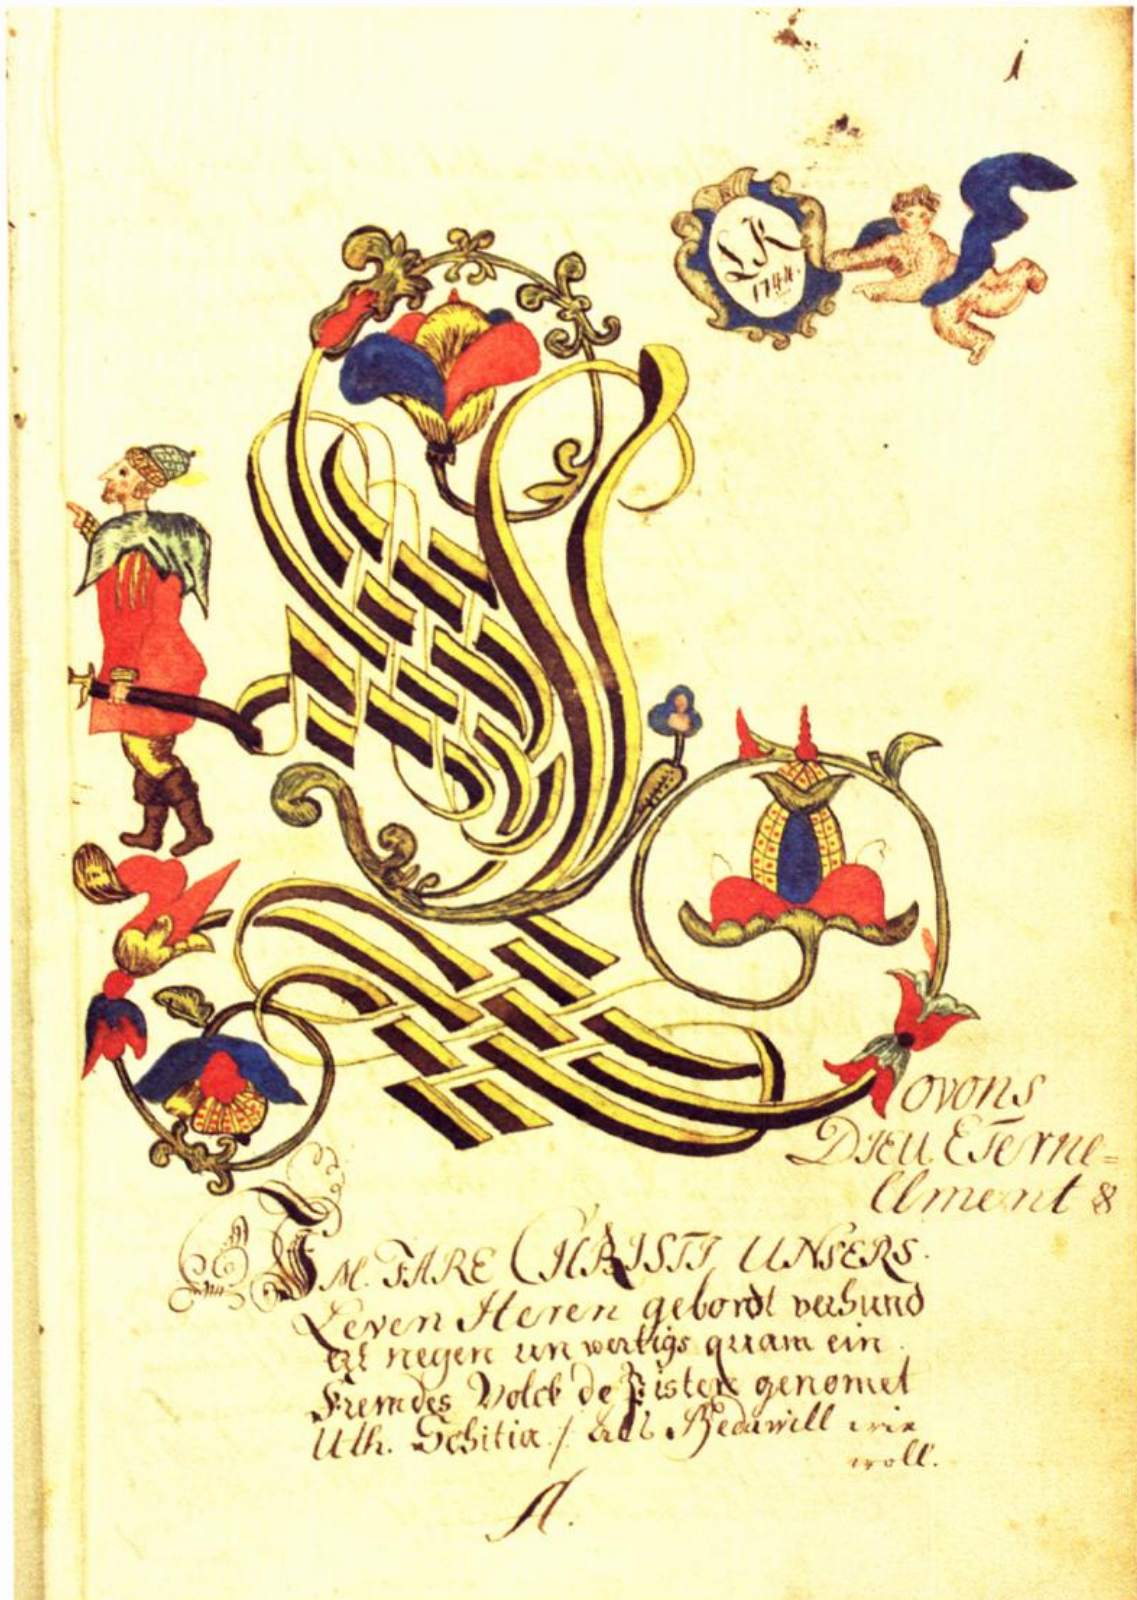 i
LK
1744.
L
ovons
DIEU ETERNE=
llment &
IM. JARE CHRISTI UNSERS.
Leven Heren gebordt verhund
negen un vertigs quam ein
Fremdes Volck de genomet
Uth. Schitia / wie
woll.
A.